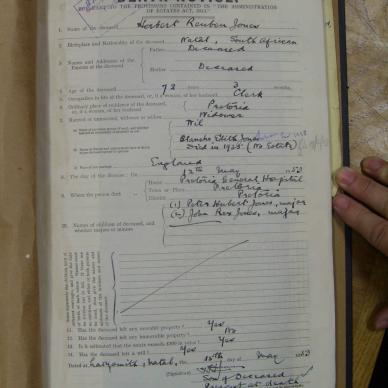 DEATH NOTICE.
PURSUANT TO THE PROVISIONS CONTAINED IN "THE ADMINISTRATION
OF ESTATES ACT, 1913."
1. Name of the deceased Herbert Reuben Jones
2. Birthplace and Nationality of the deceased Natal, South African
3. Names and Addresses of the Parents of the deceased
Father Deceased
Mother Deceased
4. Age of the deceased 72 years 3 months
Clerk
Ordinary place of residence of the deceased Pretoria
Married or unmarried, widower or widow Widower
Nil
Blanche Edith Jones
Died in 1925 (No Estate)
England
8. The day of the decease: On 12th May 1953
9. Where the person died
House Pretoria General Hospital
Town or Place Pretoria
District Pretoria
10. Names of children of deceased, and whether majors or minors
(1) Peter Herbert Jones, major
(2) John Rex Jones, major
11. Has the deceased left any movable property? Yes
12. Has the deceased left any immovable property? No
13. Is it estimated that the estate exceeds £300 in value? Yes
14. Has the deceased left a will? Yes
Dated at Ladysmith, Natal, the 15th day of May 1953
(Signature)
Son of Deceased
Present at death